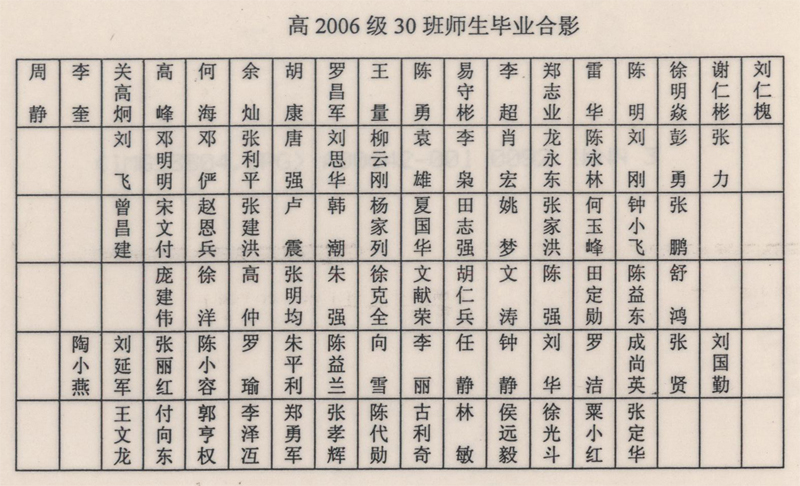 高2006级30班师生毕业合影
周静 李奎 关高炯 高峰 何海 余灿 胡康 罗昌军 王量 陈勇 易守彬 李超 郑志业 雷华 陈明 徐明焱 谢仁彬 刘仁槐
刘飞 邓明明 邓俨 张利平 唐强 刘思华 柳云刚 袁雄 李枭 肖宏 龙永东 陈永林 刘刚 彭勇 张力
曾昌建 宋文付 赵恩兵 张建洪 卢震 韩潮 杨家列 夏国华 田志强 姚梦 张家洪 何玉峰 钟小飞 张鹏
庞建伟 徐洋 高仲 张明均 朱强 徐克全 文献荣 胡仁兵 文涛 陈强 田定勋 陈益东 舒鸿
陶小燕 刘延军 张丽红 陈小容 罗瑜 朱平利 陈益兰 向雪 李丽 任静 钟静 刘华 罗洁 成尚英 张贤 刘国勤
王文龙 付向东 郭亨权 李泽沍 郑勇军 张孝辉 陈代勋 古利奇 林敏 侯远毅 徐光斗 粟小红 张定华